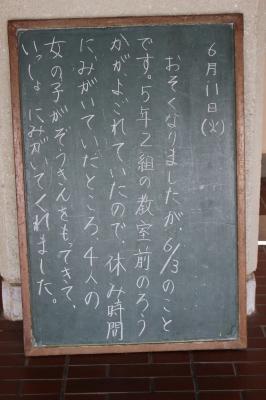 6月11日(火)
おそくなりましたが、6/3のこと
です。5年2組の教室前のろう
かが、よごれていたので、休み時間
に、みがいていたところ、4人の
女の子がぞうきんをもってきて、
いっしょにみがいてくれました。